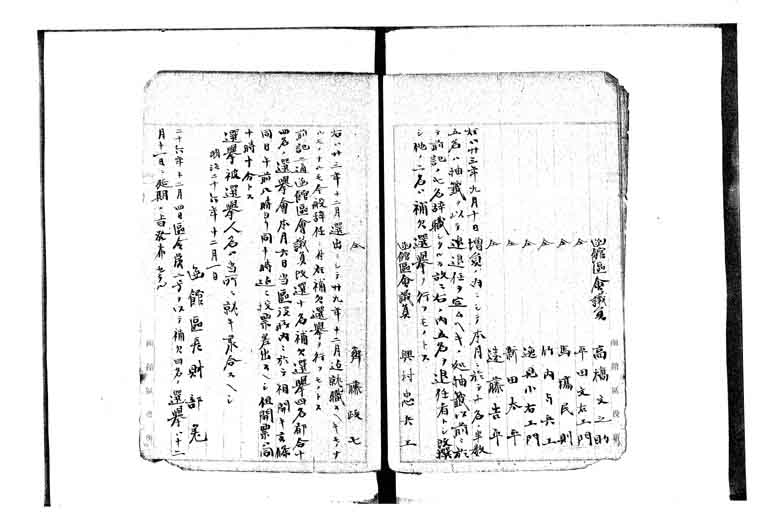 函館區會議員 高橋文之助
仝 平田文右エ門
仝 馬場民則
仝 竹内与兵エ
仝 逸見小右エ門
仝 新田太平
仝 遠藤吉平
右ハ廿三年九月十日増員ノ内ニシテ本月ニ於テ十名ノ半数
五名ハ抽籤ヲ以テ退任ヲ定ムヘキノ処抽籤以前ニ於
テ前記ノ七名辞職セシ故ニ右ノ内五名ヲ退任者トシ改撰
シ他ノ二名ハ補欠選擧ヲ行フモノトス
函館區會議員 興村忠兵エ
仝 齊藤政七
右ハ廿三年十二月選出ニシテ廿九年十二月迄就職スヘキモノナ
ルモ今般辞任ニ付在補欠選擧ヲ行フモノトス
前記ノ通函館區會議員改選十名補欠選擧四名都合十
四名ノ選擧會本月六日当區役所内ニ於テ相開キ候條
同日午前八時ヨリ同十時迄ニ投票差出スヘシ但開票ハ同
十時十分トス
選擧被選擧人名ハ当所ニ就キ承合スヘシ
明治二十六年十二月一日
函館區長財部羌
二十六年十二月四日區會第二号ヲ以テ補欠四名ノ選擧ハ十二
月十一日ニ延期ノ旨発布セラル
函館區役所
函館區役所